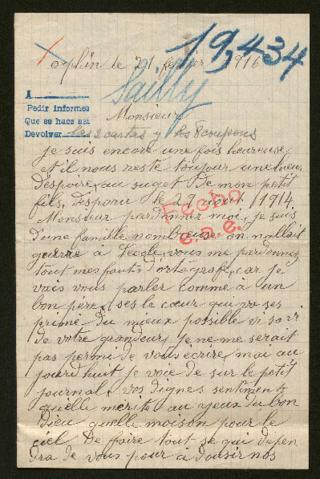 19,434
le 21 février 1916
Sailly
A
Pedir informes
Que se hace saber
Devolver
Monsieur
les 2 cartas y los 8 coupons
je suis encore une fois heureuse
et il nous reste toujour une lueur
d'espoire, au suget de mon petit
fils, disparu le 7 aout 1914.
Monsieur pardonner moi, je suis
d'une famille nombreuse on nallait
guerre a l'ecole, vous me pardonnez
tout mes fauts d'ortografe, car je
vais vous parler comme a un
bon père, ses le cœur qui vo ses
prime du mieux possible vi savi
de votre grandeur, je ne me serait
pas permi de vous écrire, mai au
jourd'huit je voie de sur le petit
journal, vos dignes sentiments
quelle merite au yeux du bon
Dieu quelle moison pour le
ciel De faire tout se qui depen
dra de vous pour a doussir nos